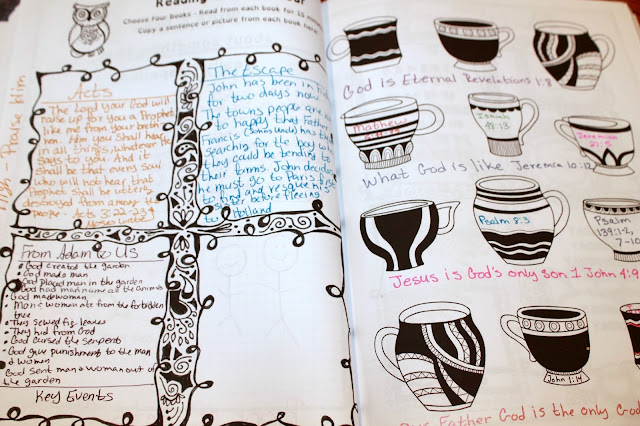 Reading
Choose Four Books - Read from each book for 15
Copy a sentence or picture from each book here
High - Praise Him
Acts
The Lord your God will
raise up for you a Prophet
like me from your breth-
ren. Him you shall hear
in all things, whatever He
says to you. And it
shall be that every soul
who will not hear that
Prophet shall be utterly
destroyed from among the
people. Acts 3:22-23
The Escape
John has been in
for two days now.
The towns people are
so happy that
Francis has
searching for the boy when
they could be tending to
their farms. John decides
he must go to Paris to
find and rescue his
sister before fleeing
to Holland
From Adam to Us
• God created the garden
• God made man
• God placed man in the garden
• God had man name all the animals
• God made woman
• Man & woman ate from the forbidden
tree
• They sewed fig leaves
• They hid from God
• God cursed the serpent
• God gave punishment to the man
& woman
God sent man & woman out of
the garden
Key Events
God is Eternal Revelations 1:8
Matthew
Isaiah
48:13
Jeremiah
What God is like Jeremia 10:12
Psalm 8:3
Psalm
139:1-2,
7-10
Jesus is God's only son 1 John 4:9
John 1:14
Father God is the only God